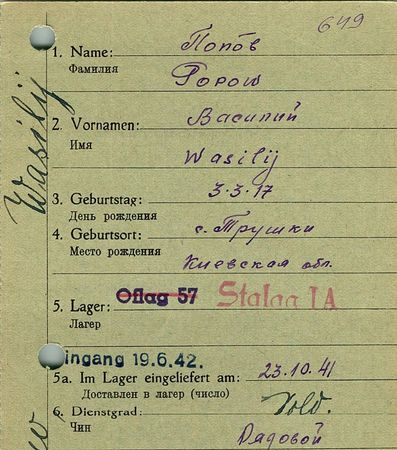 649
1. Name: Попов
Фамилия
Popow
2. Vornamen: Василий
Имя
Wasilij
Wasilij
3. Geburtstag: 3.3.17
День рождения
4. Geburtsort: с. Трушки
Место рождения
Киевская обл.
5. Lager: Oflag 57 Stalag IA
Лагер
Eingang 19.6.42.
5a. Im Lager eingeliefert am: 23.10.41
Доставлен в лагер (число)
6. Dienstgrad: Sold.
Чин
Рядовой